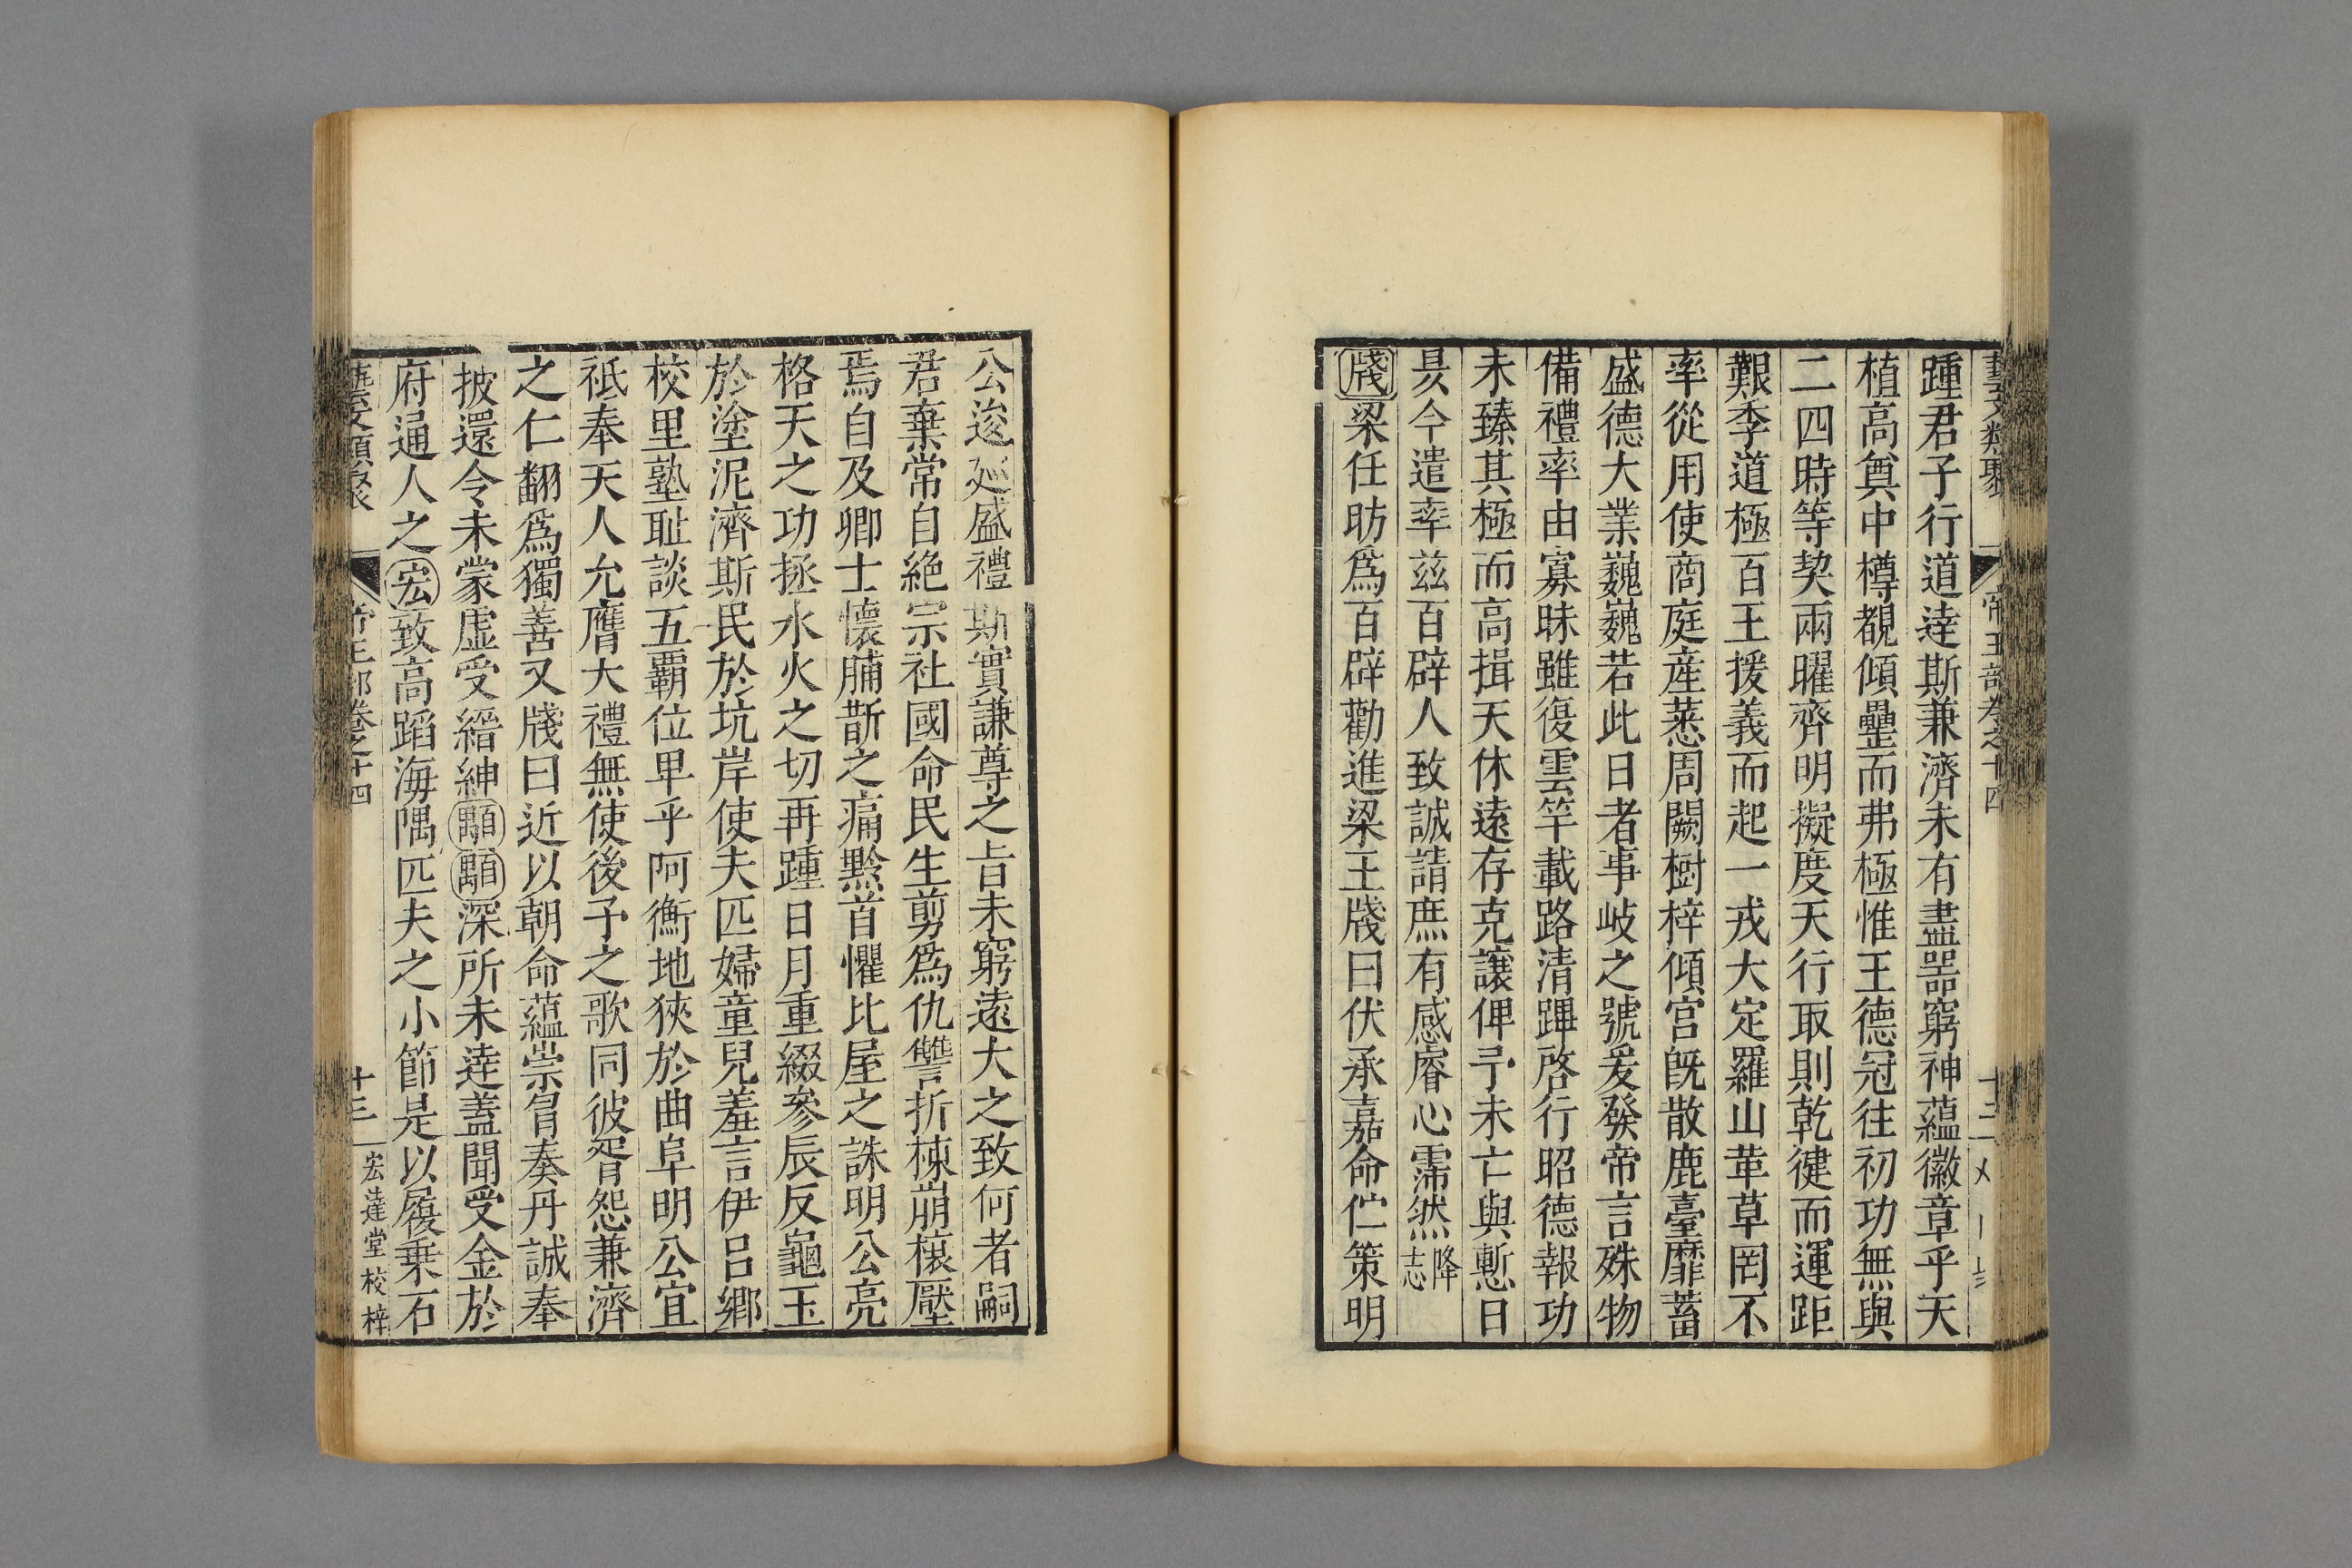 踵君子行道逹斯兼濟未有盡噐窮神蘊徽章乎天
植高奠中樽覩傾罍而弗極惟王德冠往初功無與
二四時等契兩曜齊明擬度天行取則乾健而運距
艱季道極百王援義而起一戎大定羅山革草罔不
率從用使商庭産蒸周闕樹梓傾宫旣散鹿臺靡蓄
盛德大業巍巍若此日者事岐之號爰發帝言殊物
備禮率由寡昧雖復雲竿載路清蹕啓行昭德報功
未臻其極而高揖天休遠存克讓俾予未亡與慙日
昃今遣率兹百辟人致誠請庶有感睿心霈然降志
牋梁任昉爲百辟勸進梁王牋曰伏承嘉命伫策明
公逡廵盛禮斯實謙尊之㫖未窮遠大之致何者嗣
君棄常自絶宗社國命民生剪爲仇讐折棟崩榱壓
焉自及卿士懷脯斮之痛黔首懼比屋之誅明公亮
格天之功拯水火之切再踵日月重綴參辰反龜玉
於塗泥濟斯民於坑岸使夫匹婦童兒羞言伊吕鄉
校里塾耻談五覇位卑乎阿衡地狹於曲阜明公宜
祗奉天人允膺大禮無使後予之歌同彼胥怨兼濟
之仁翻爲獨善又牋曰近以朝命蘊崇冐奏丹誠奉
披還令未蒙虚受縉紳顒顒深所未逹葢聞受金於
府通人之宏致高蹈海隅匹夫之小節是以履乗石
藝文類聚 帝王部卷之十四 十三 宏逹堂校梓